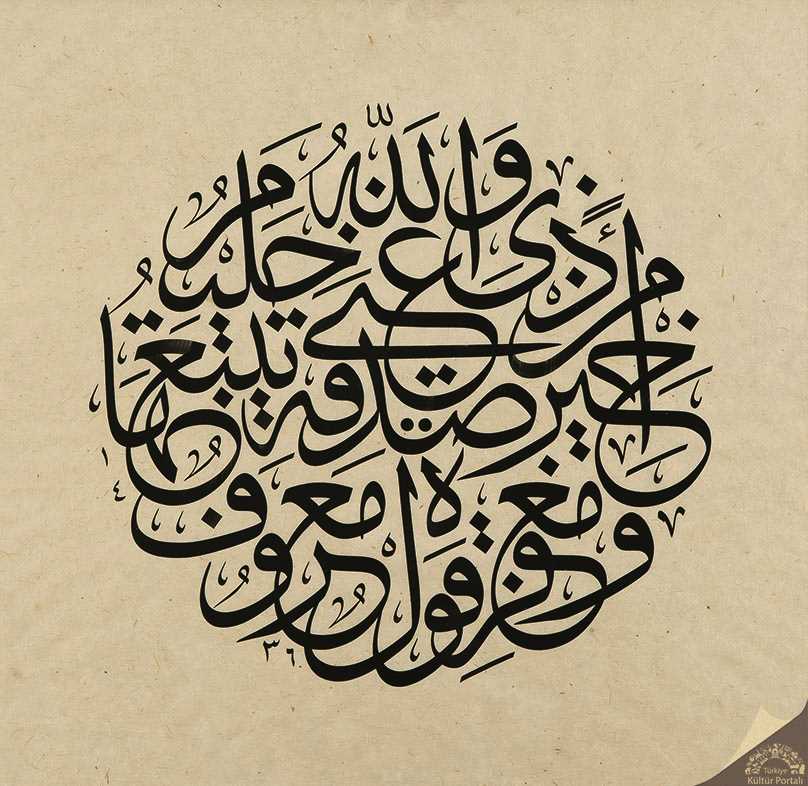 قول معروف ومغفرة
خير من صدقة يتبعها
أذى والله غني حليم
١٤٣٦
Türkiye
Kültür Portalı